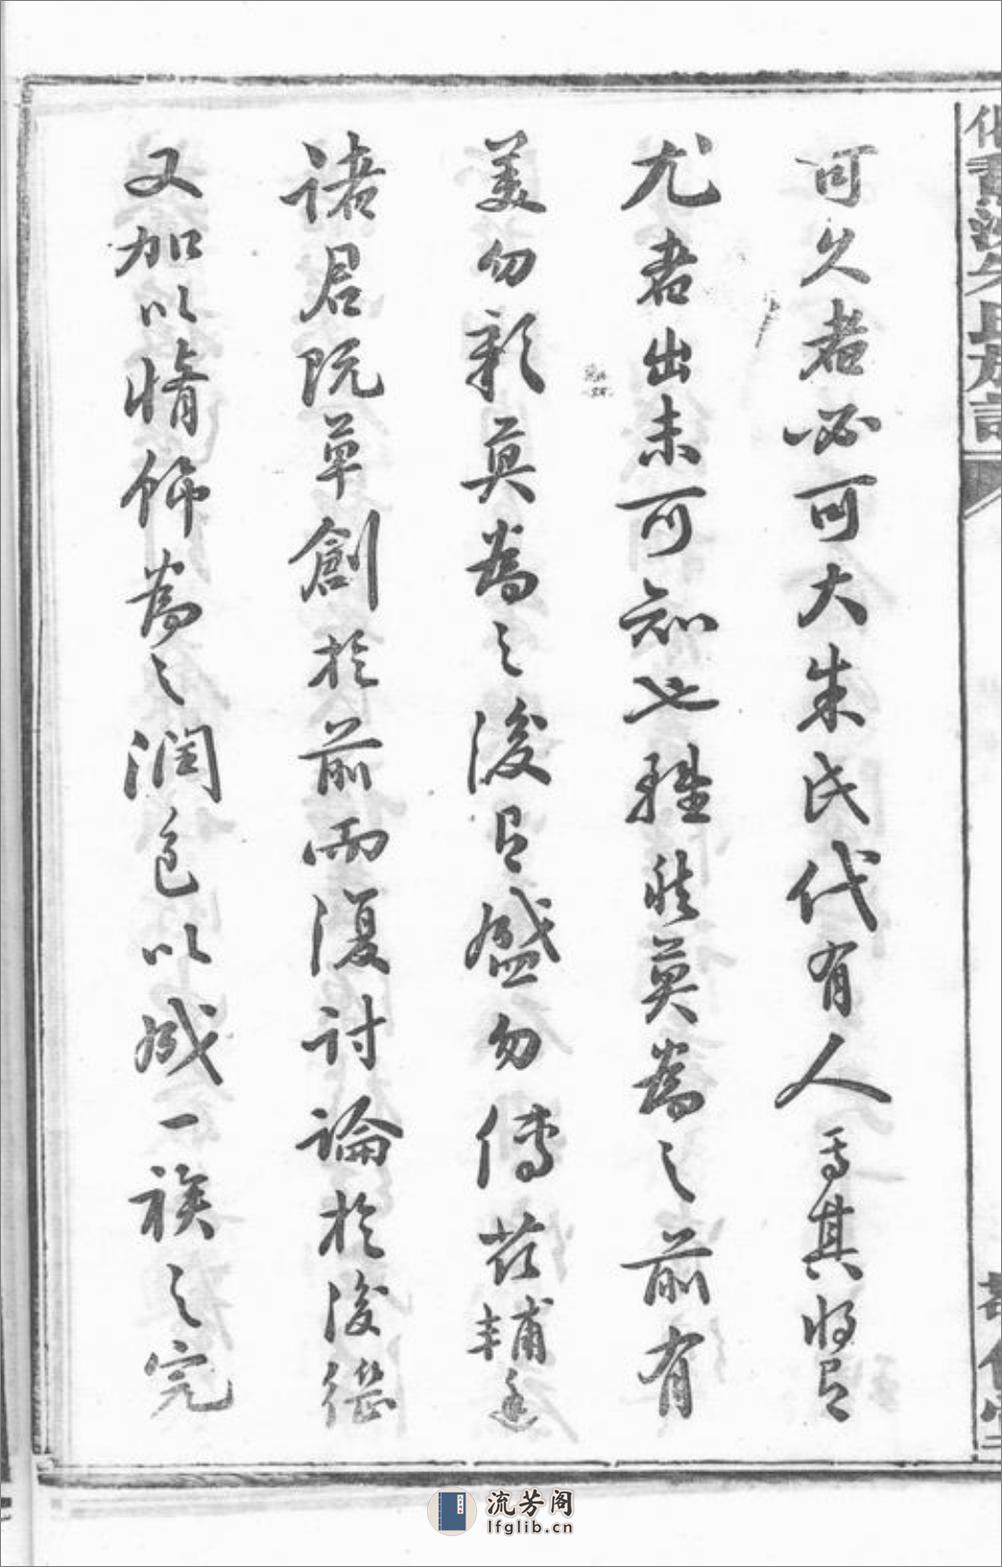 朱氏族譜
可久者必可大朱氏代有人焉其將有
尤者出未可知也雖然莫為之前有
美勿彰莫為之後有盛勿傳茲輔廷
諸君既草創於前而復討論於後
又加以脩飾為之潤色以成一族之完
流芳阁
lfglib.cn